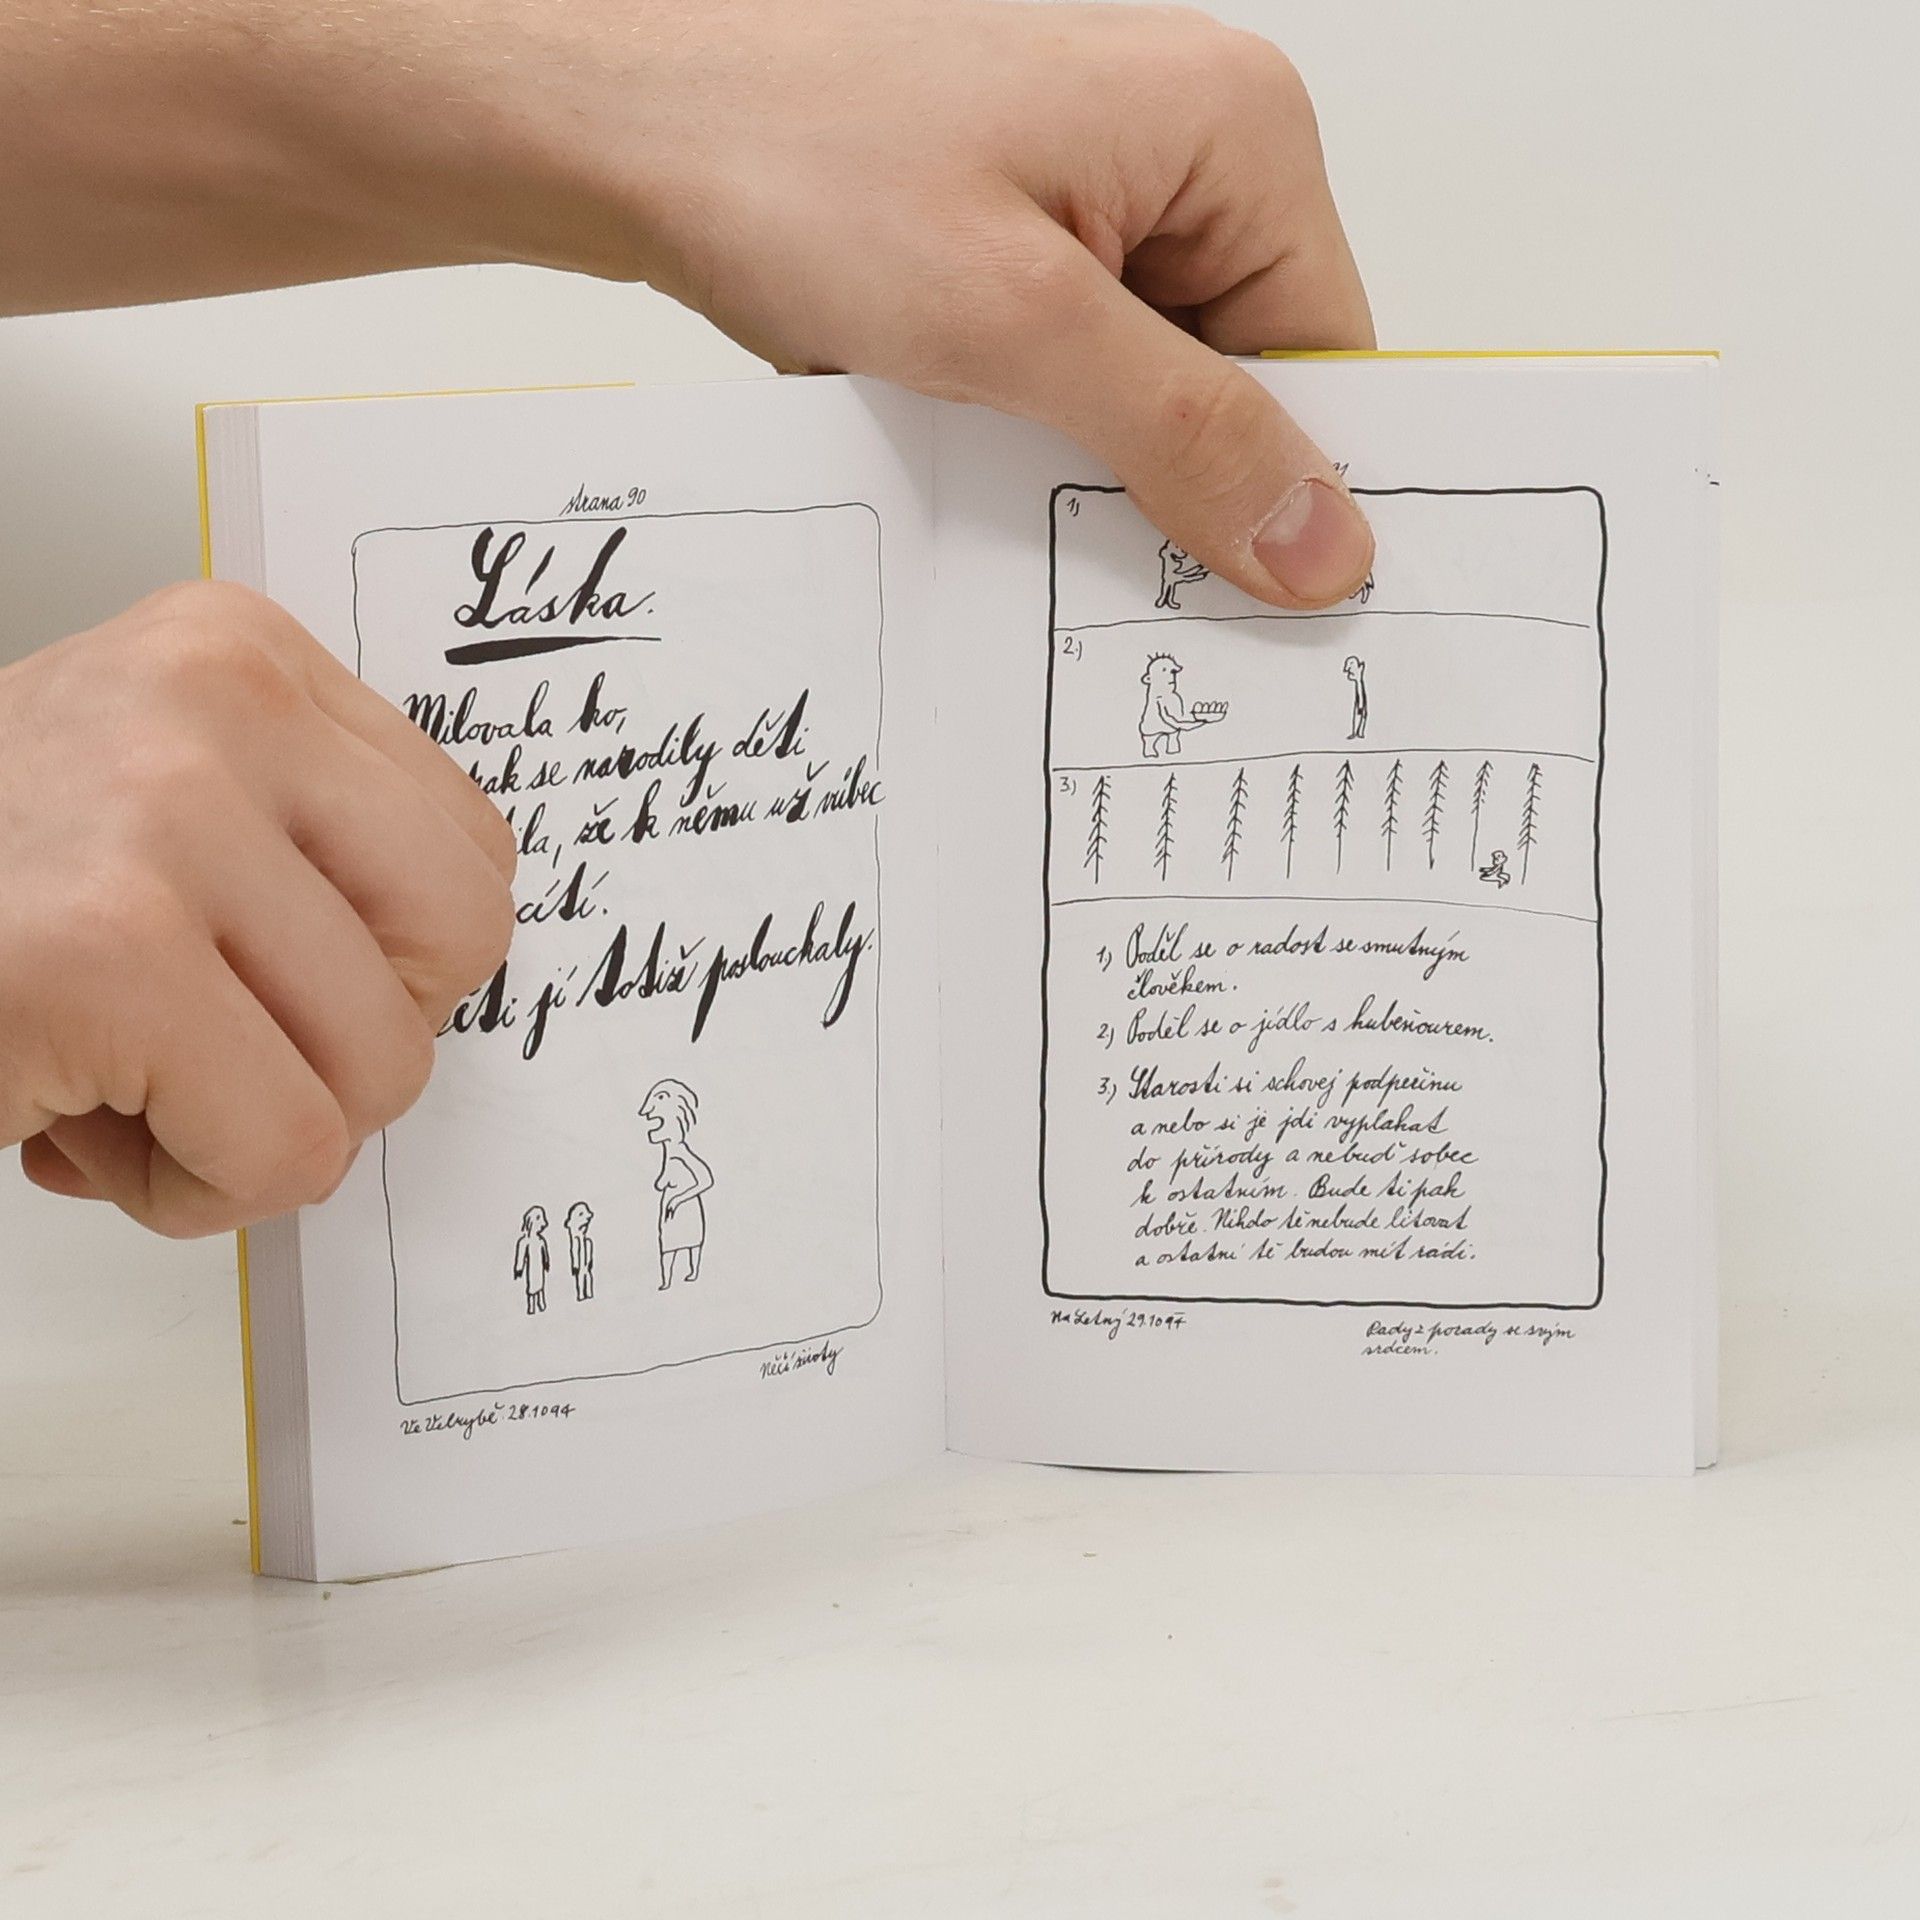 strana 90
Láska.
Milovala ho,
pak se narodily děti
že k němu už vůbec
cítí.
jí totiž poslouchaly.
Něčí životy
Ve Velrybě 28.10 94
1)
2.)
3.)
1.) Poděl se o radost se smutným
člověkem.
2.) Poděl se o jídlo s hubeňourem.
3.) Starosti si schovej podpeřinu
a nebo si je jdi vyplakat
do přírody a nebuď sobec
k ostatním. Bude ti pak
dobře. Nikdo tě nebude litovat
a ostatní tě budou mít rádi.
Na Letný 29.10 94
Rady z porady se svým
srdcem.